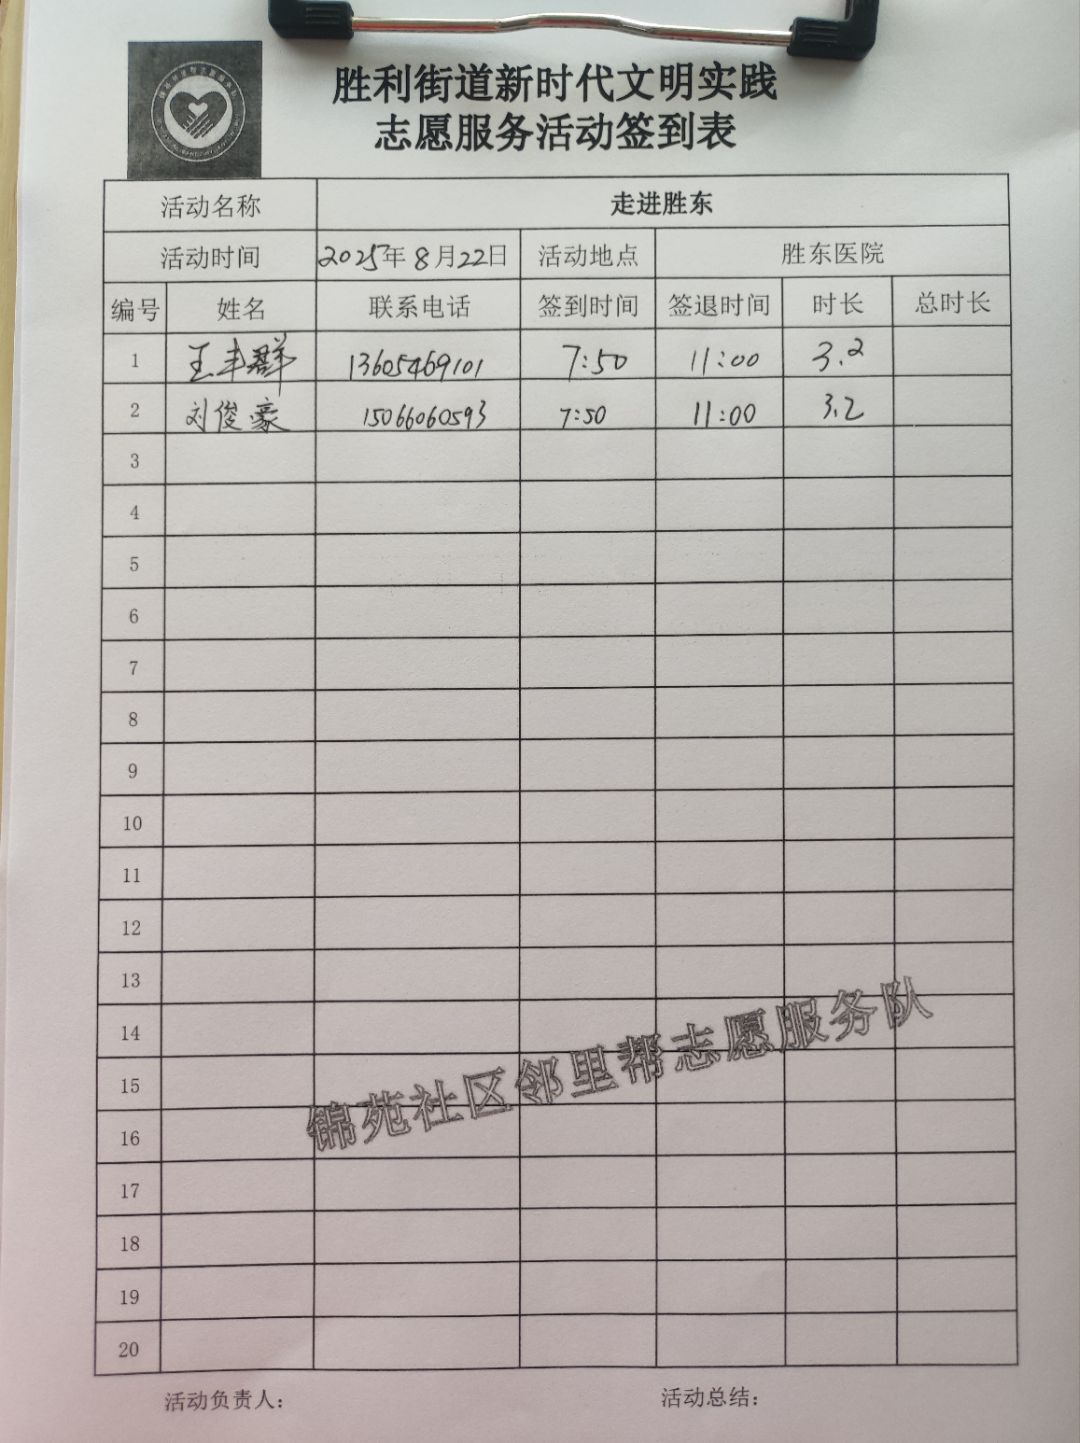 胜利街道新时代文明实践
志愿服务活动签到表
活动名称 走进胜东
活动时间 2025年8月22日 活动地点 胜东医院
编号 姓名 联系电话 签到时间 签退时间 时长 总时长
1 王丰群 13605469101 7:50 11:00 3.2
2 刘俊豪 15066060593 7:50 11:00 3.2
3
4
5
6
7
8
9
10
11
12
13
14
15
16
17
18
19
20
锦苑社区邻里帮志愿服务队
活动负责人: 活动总结: